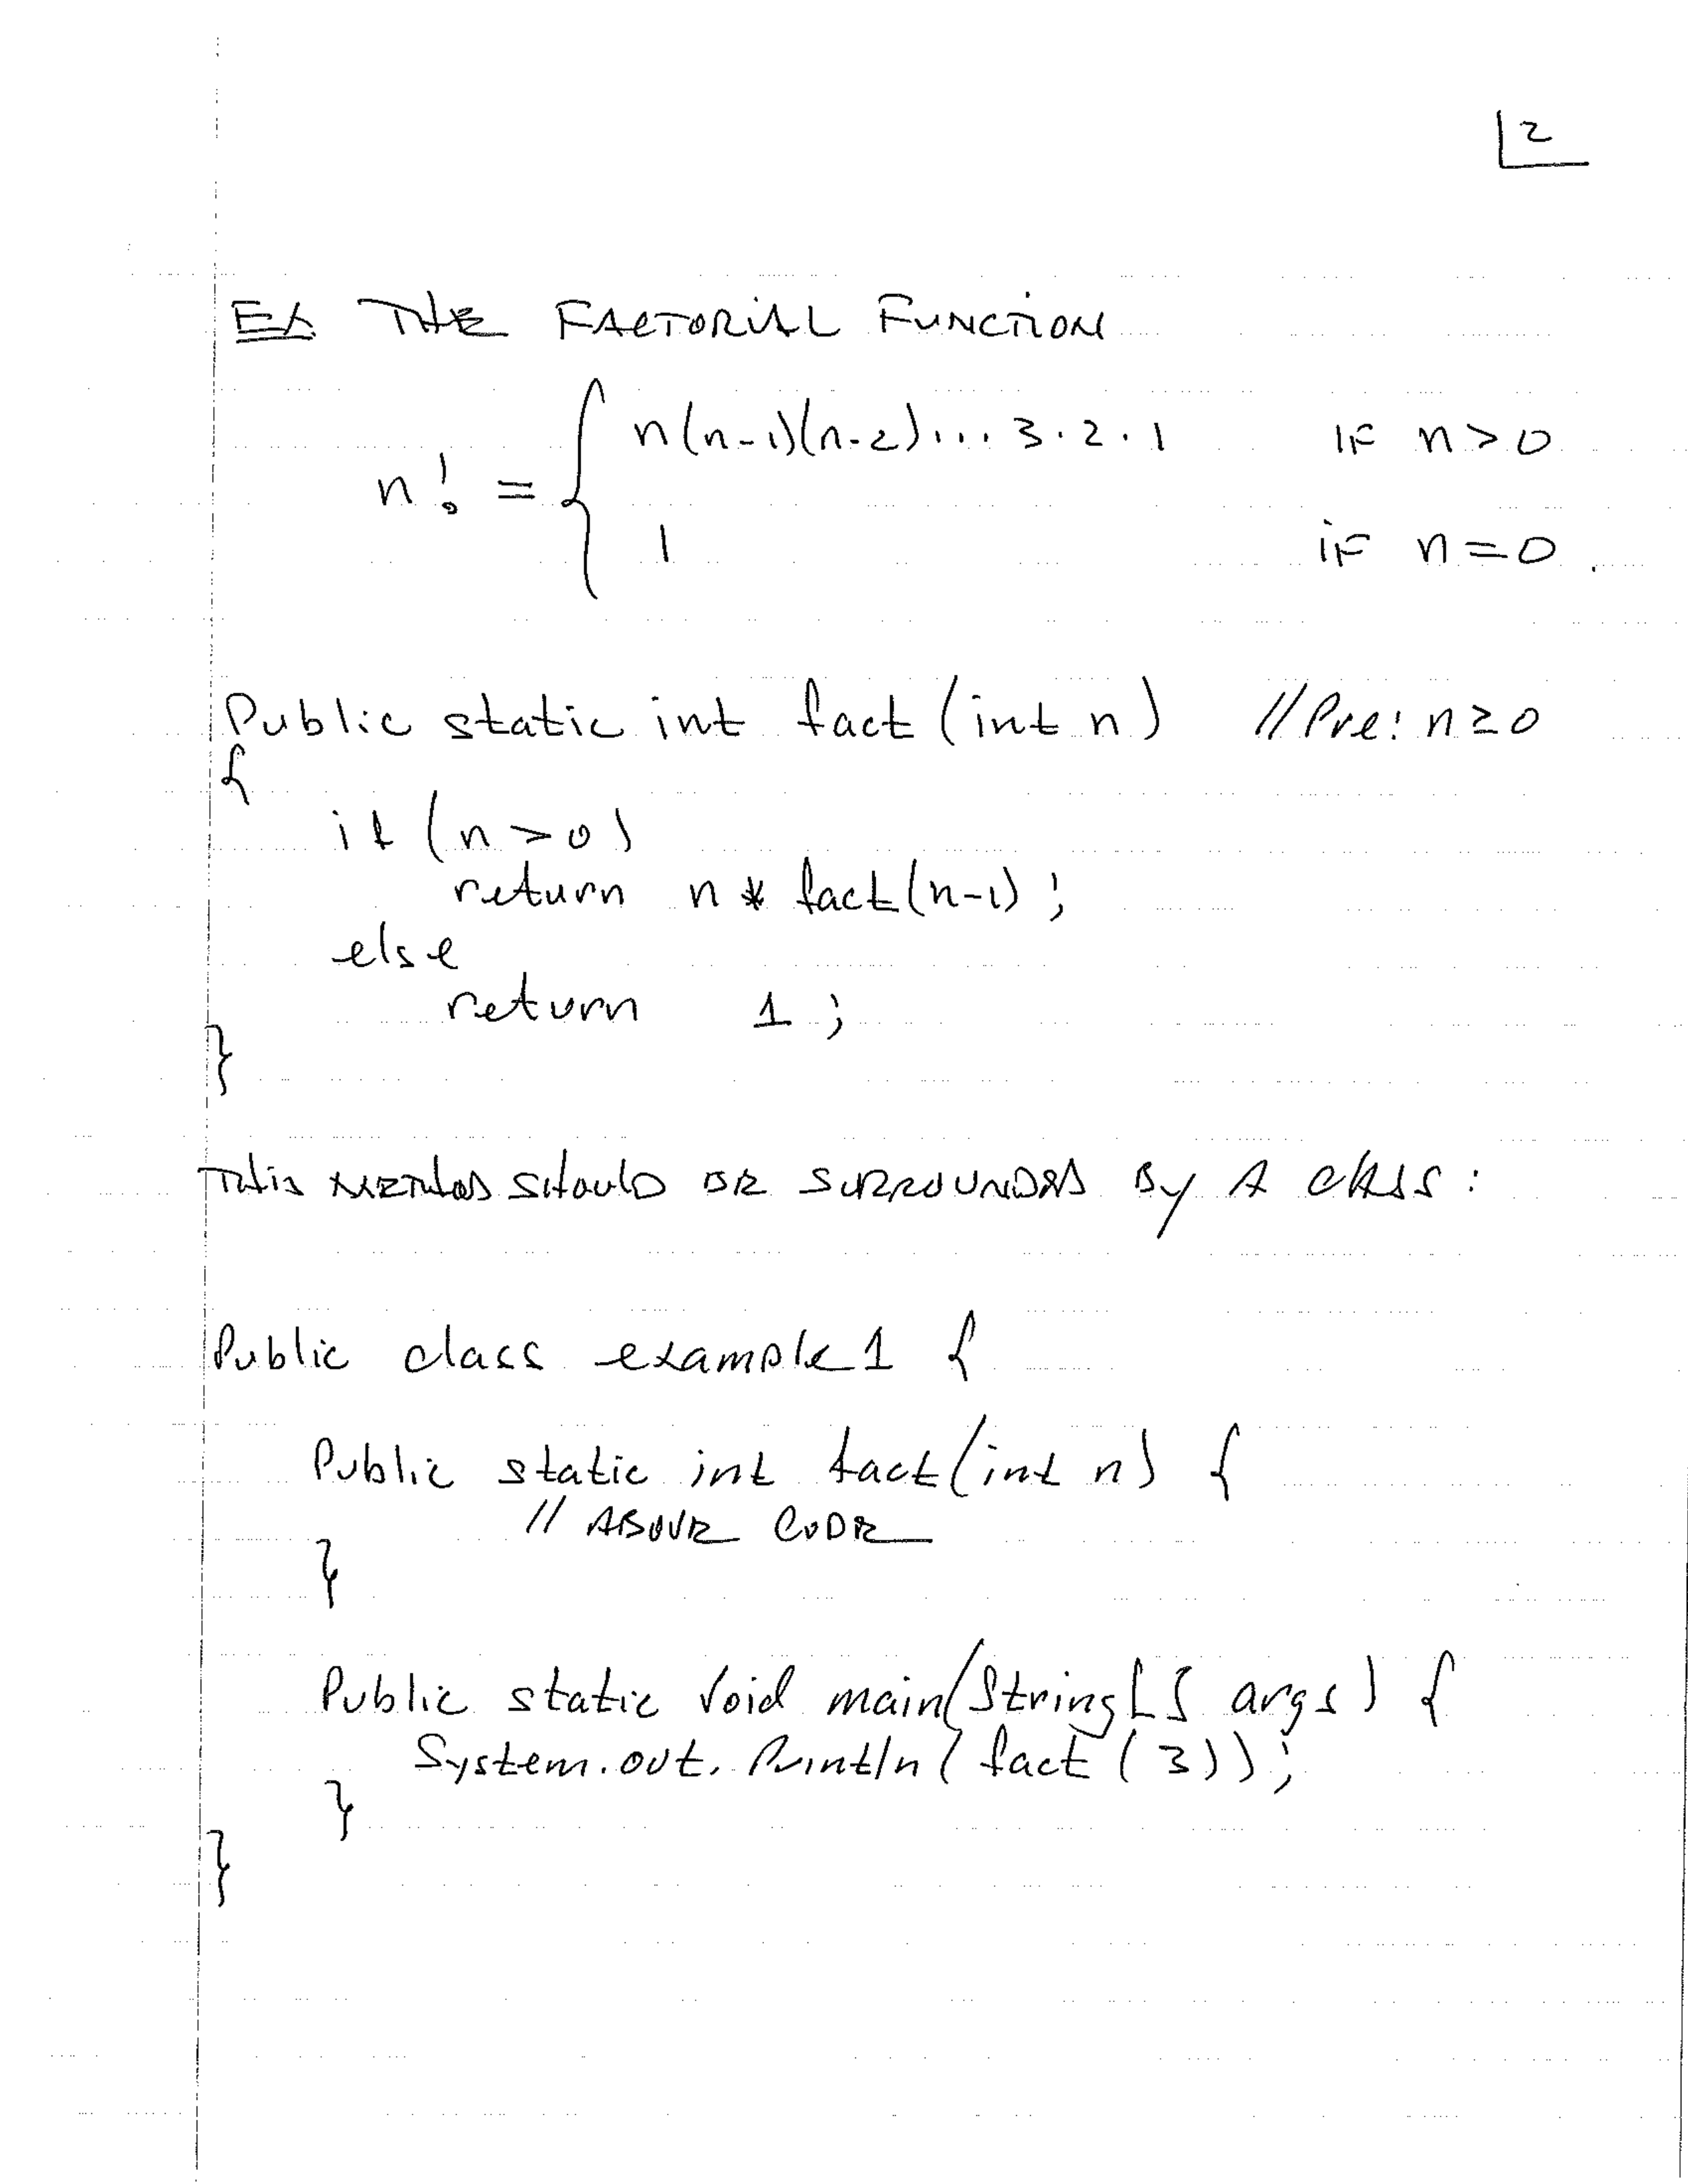 2
Ex THE FACTORIAL FUNCTION
n! = { n(n-1)(n-2)... 3·2·1 IF n>0
1 iF n=0.
Public static int fact (int n) //Pre: n≥0
{
if (n>0)
return n * fact(n-1);
else
return 1;
}
THIS METHOD SHOULD BE SURROUNDED BY A CLASS:
Public class example1 {
Public static int fact(int n) {
// ABOVE CODE
}
Public static void main(String[] args) {
System.out.Println(fact(3));
}
}